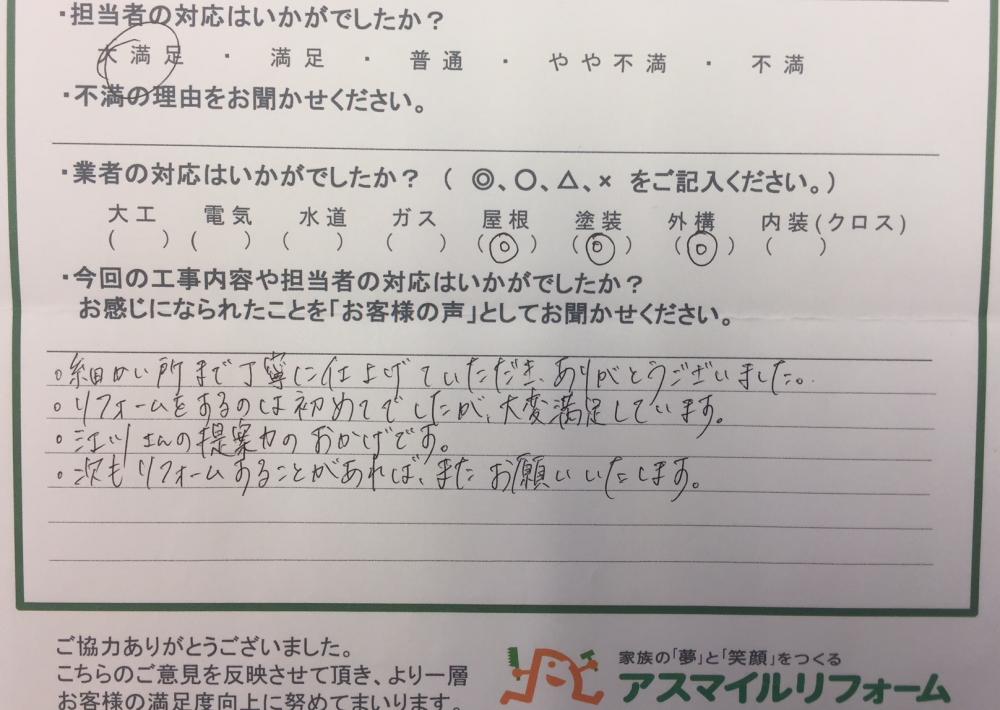 ・担当者の対応はいかがでしたか？
大満足 ・ 満足 ・ 普通 ・ やや不満 ・ 不満
・不満の理由をお聞かせください。
・業者の対応はいかがでしたか？（ ◎、○、△、× をご記入ください。）
大工 電気 水道 ガス 屋根 塗装 外構 内装(クロス)
( ) ( ) ( ) ( ) (◎) (◎) (◎) ( )
・今回の工事内容や担当者の対応はいかがでしたか？
お感じになられたことを「お客様の声」としてお聞かせください。
○細かい所まで丁寧に仕上げていただき、ありがとうございました。
○リフォームをするのは初めてでしたが、大変満足しています。
○江川さんの提案力のおかげです。
○次もリフォームすることがあれば、またお願いいたします。
ご協力ありがとうございました。
こちらのご意見を反映させて頂き、より一層
お客様の満足度向上に努めてまいります。
家族の「夢」と「笑顔」をつくる
アスマイルリフォーム